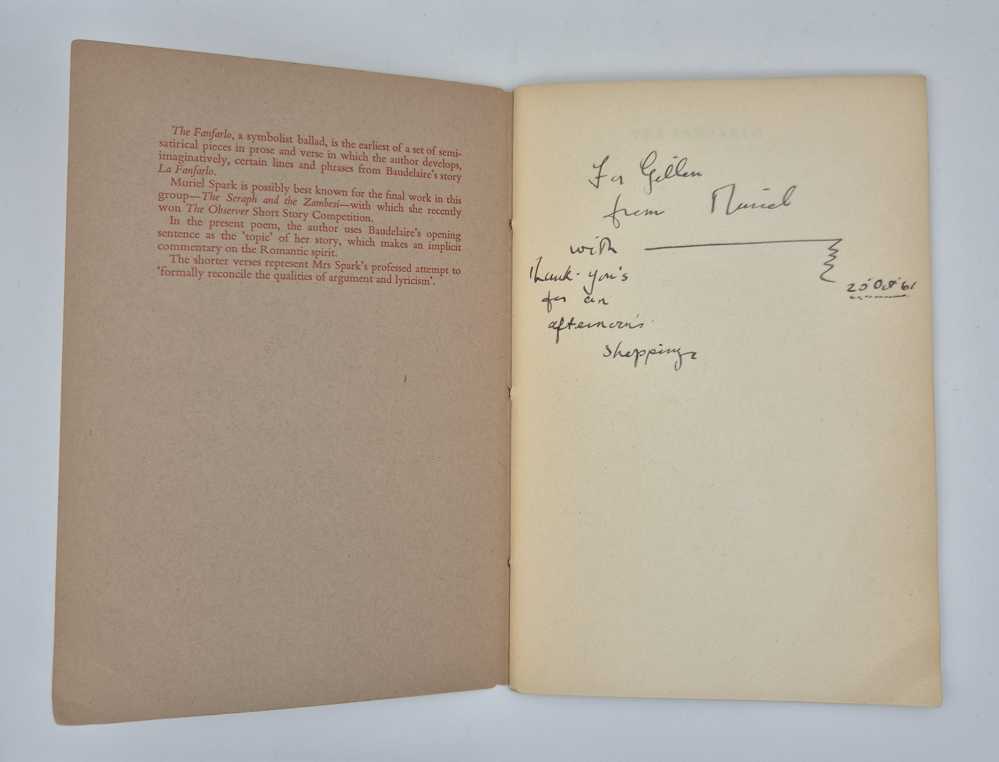 The Fanfarlo, a symbolist ballad, is the earliest of a set of semi-
satirical pieces in prose and verse in which the author develops,
imaginatively, certain lines and phrases from Baudelaire's story
La Fanfarlo.
Muriel Spark is possibly best known for the final work in this
group—The Seraph and the Zambesi—with which she recently
won The Observer Short Story Competition.
In the present poem, the author uses Baudelaire's opening
sentence as the 'topic' of her story, which makes an implicit
commentary on the Romantic spirit.
The shorter verses represent Mrs Spark's professed attempt to
'formally reconcile the qualities of argument and lyricism'.
For Gillen
from Muriel
with
thank-you's
for an
afternoon's
shopping
25 Oct '61